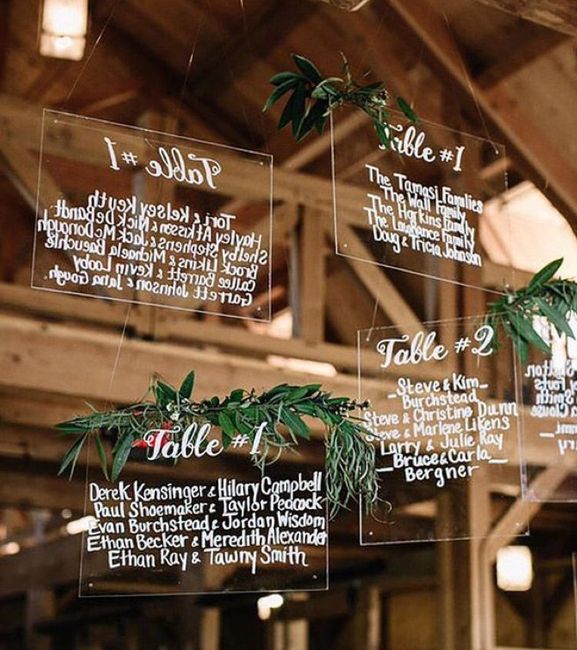 Table #1
Tori & Kelsey Keuth
Hayley Atkisson & Nick DeBandt
Shelby Stephens & Jack McDonough
Brock Likins & Michaela Baeuchle
Callee Barrett & Kevin Looby
Garrett Johnson & Jana Gough
Table #1
The Tamasi Families
The Wall Family
The Harkins Family
The Lawrance Family
Doug & Tricia Johnson
Table #2
Steve & Kim
Burchstead
Steve & Christine Dunn
Steve & Marlene Likens
Larry & Julie Ray
Bruce & Carla
Bergner
Table #1
Derek Kensinger & Hilary Campbell
Paul Shoemaker & Taylor Peacock
Evan Burchstead & Jordan Wisdom
Ethan Becker & Meredith Alexander
Ethan Ray & Tawny Smith